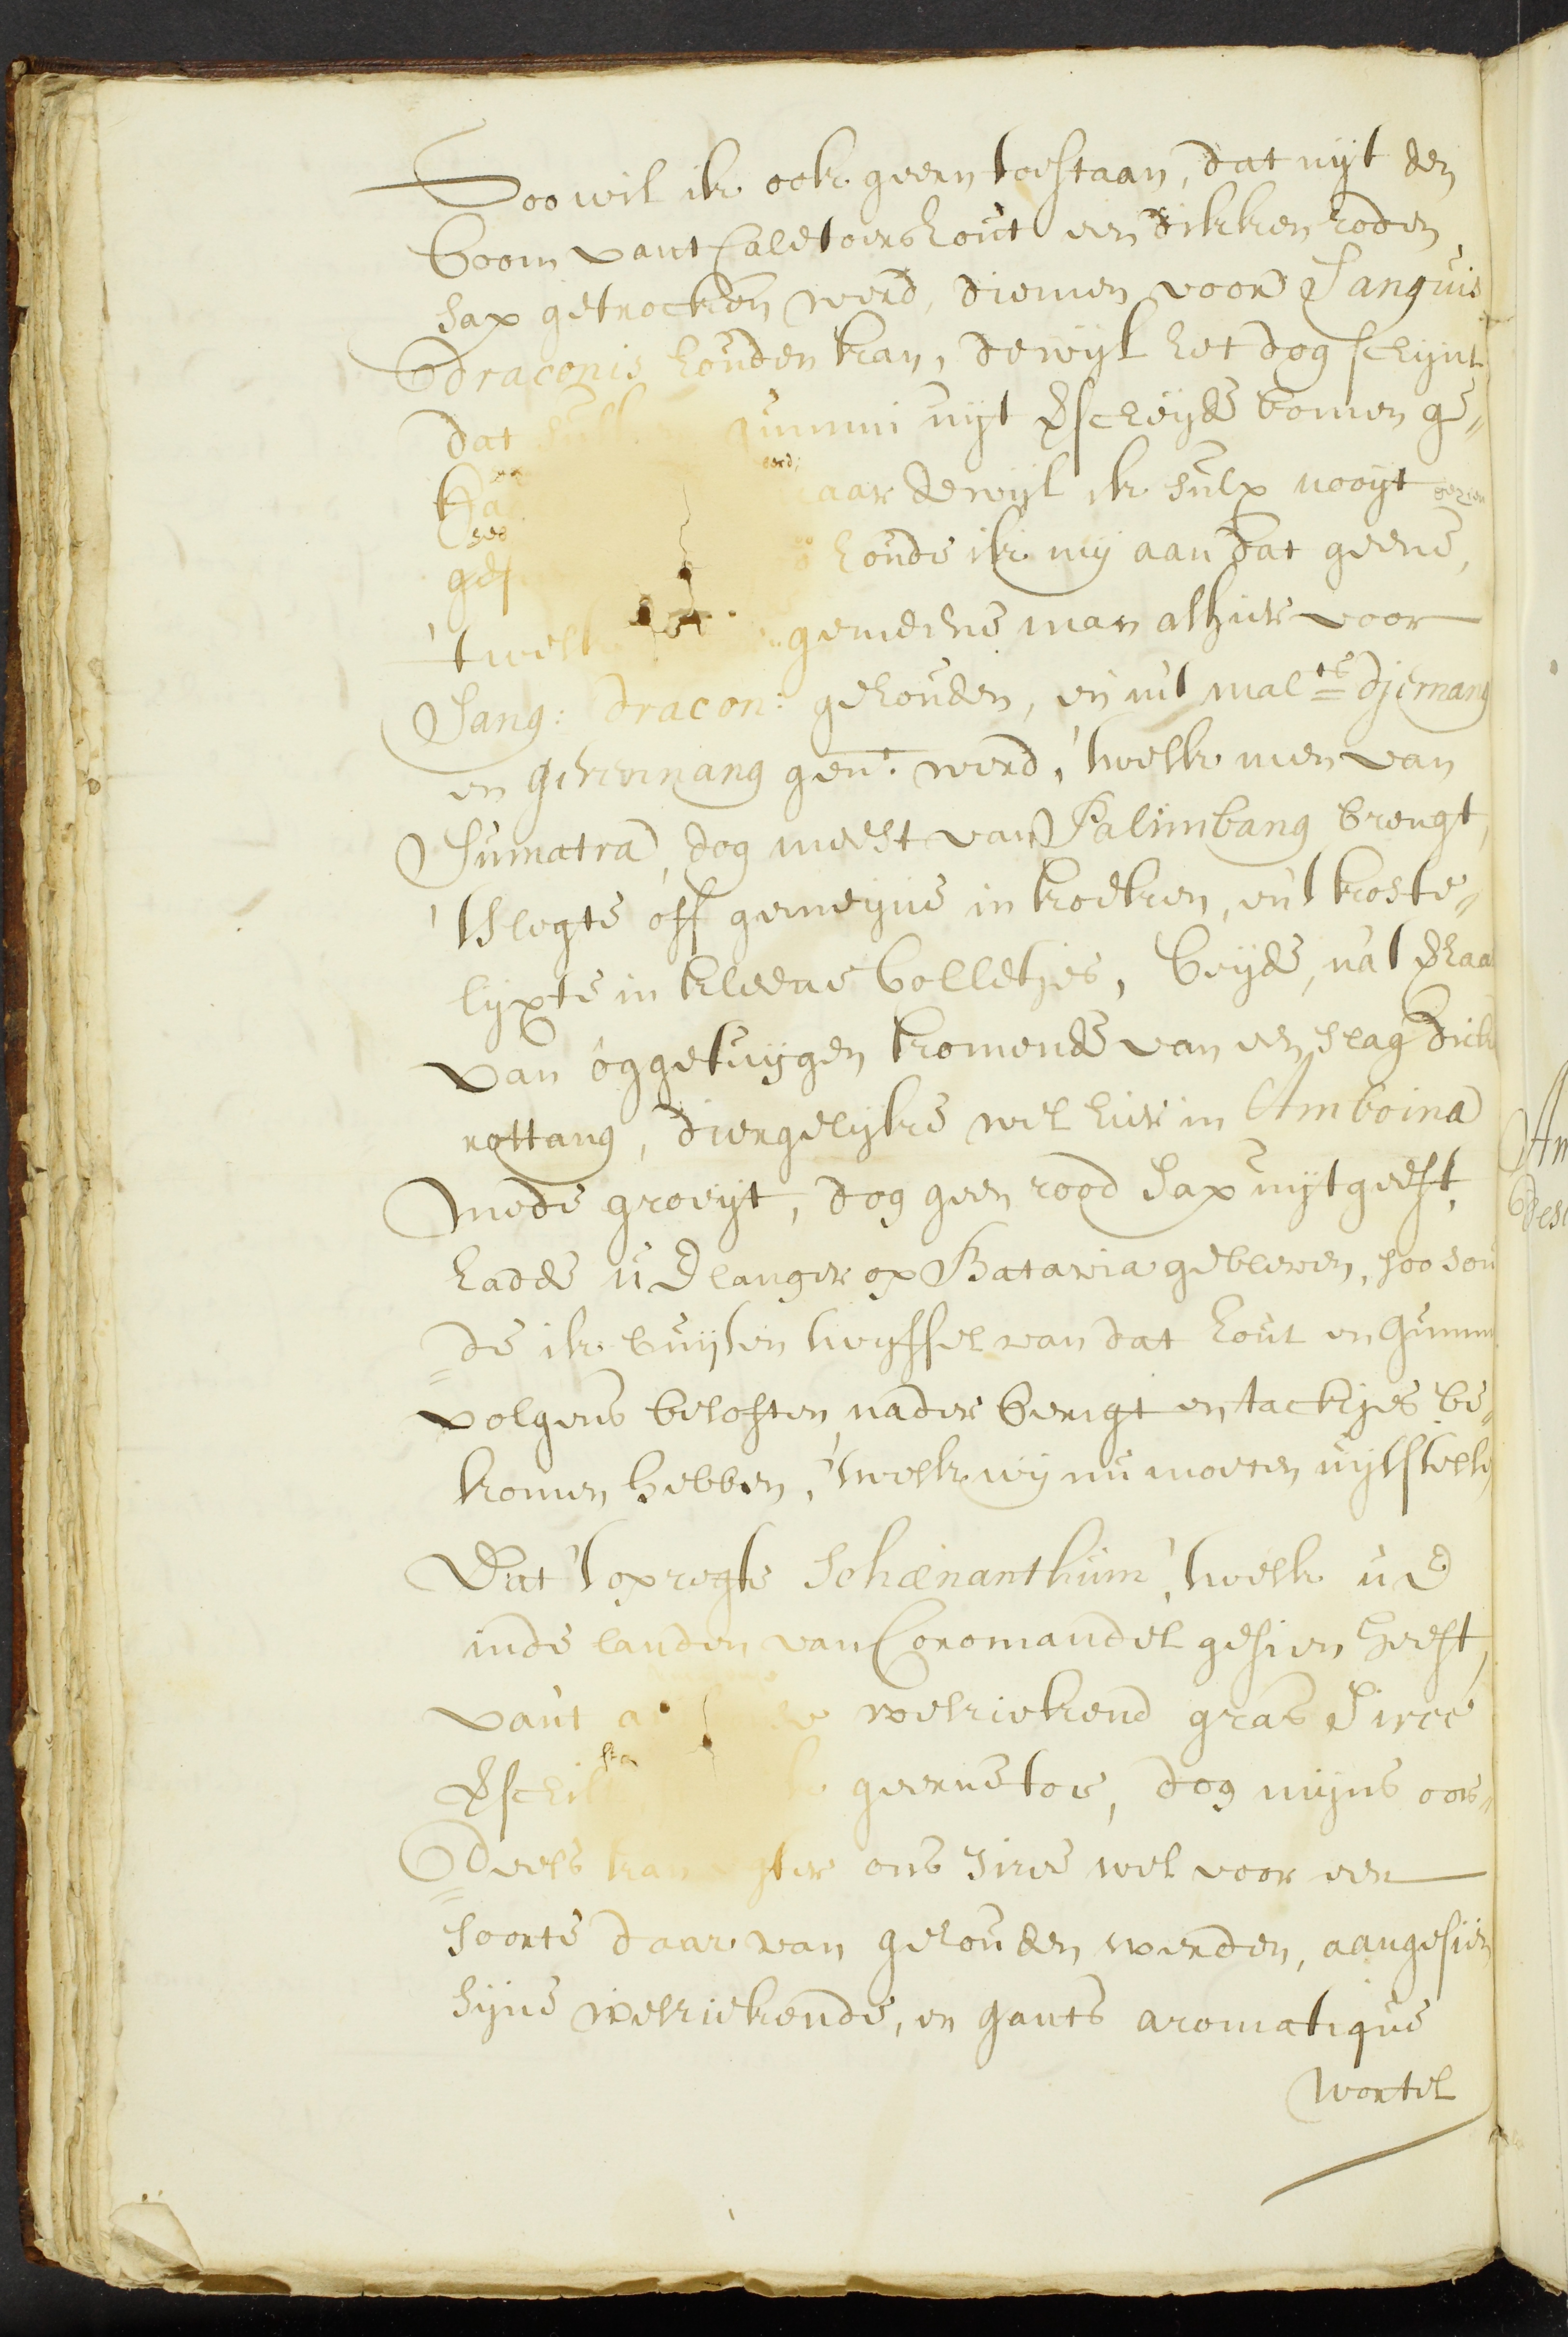 Soo wil ik ook geern toestaan, dat uijt den
boom vant Caletoers hout een dikken roden
sap getrocken werd, diemen voor Sanguis
draconis houden kan, dewijl het dog schijnt
dat gummi uijt verscheijde bomen ge„
dewijl ik sulx nooijt gezien
houde ik mij aan dat geene,
'twelk gemeene man alhier voor
Sang: dracon: gehouden, en int mal:ts djernang
en gen:t werd, 'twelk men van
Sumatra, dog meest van Palimbang brengt,
'tslegte off gemeijne in koeken, en 't koste„
lijxte in kleene bolletjes, beijde, na 't verhaal
van ooggetuijgen komende van een slag dicke
rottang, diergelijke wel hier in Amboina
mede groeijt, dog geen rood sap uijtgeeft,
hadde u E langer op Batavia gebleven, soo sou
de ik buijten twijffel van dat hout en gummi
volgens beloften nader berigt en tackjes be„
komen hebben, 'twelk wij nu moeten uijtstellen
Dat 't opregte Schœnanthum, 'twelk u E
inde landen van Coromandel gesien heeft,
vant welriekend gras Siree
geerne toe, dog mijns oor„
deels kan egter ons siree wel voor een
soorte daar van gehouden werden, aangesien
sijne welriekende, en gants aromatique
wortel